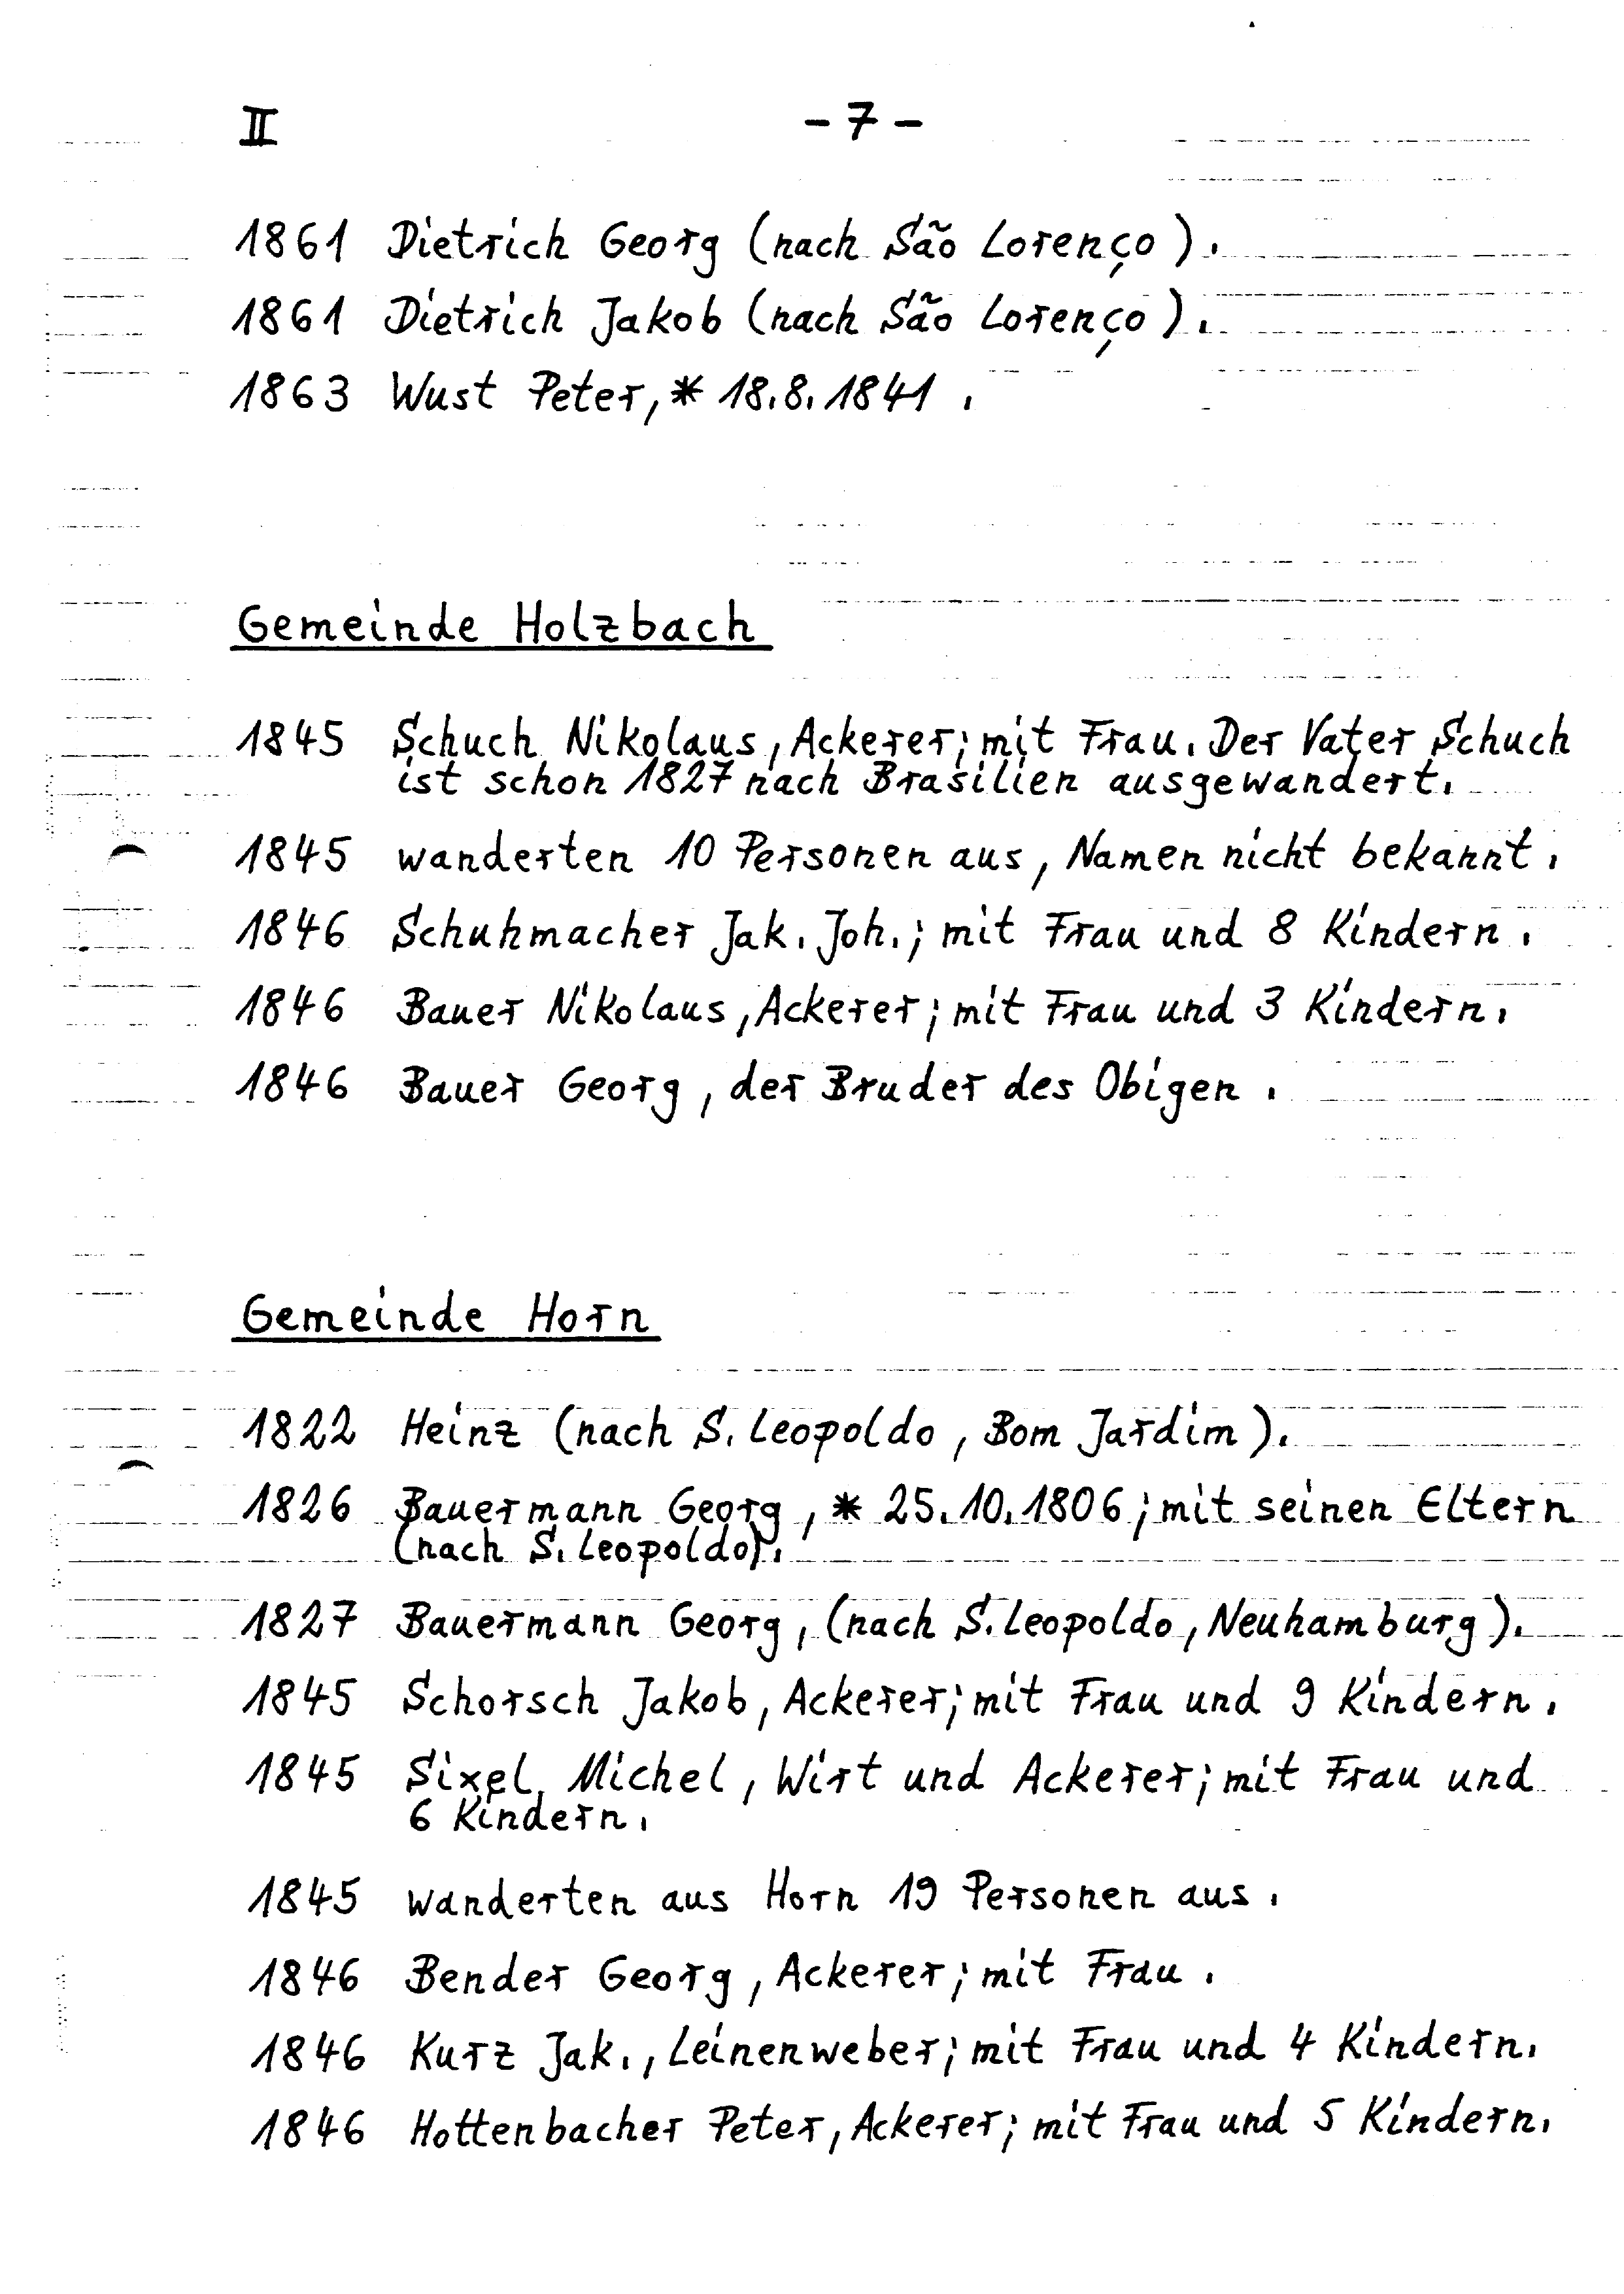 II - 7 -
1861 Dietrich Georg (nach São Lorenço).
1861 Dietrich Jakob (nach São Lorenço).
1863 Wust Peter, * 18.8.1841.
Gemeinde Holzbach
1845 Schuch Nikolaus, Ackerer; mit Frau. Der Vater Schuch
ist schon 1827 nach Brasilien ausgewandert.
1845 wanderten 10 Personen aus, Namen nicht bekannt.
1846 Schuhmacher Jak. Joh.; mit Frau und 8 Kindern.
1846 Bauer Nikolaus, Ackerer; mit Frau und 3 Kindern.
1846 Bauer Georg, der Bruder des Obigen.
Gemeinde Horn
1822 Heinz (nach S. Leopoldo, Bom Jardim).
1826 Bauermann Georg, * 25.10.1806; mit seinen Eltern
(nach S. Leopoldo).
1827 Bauermann Georg, (nach S. Leopoldo, Neuhamburg).
1845 Schorsch Jakob, Ackerer; mit Frau und 9 Kindern.
1845 Sixel Michel, Wirt und Ackerer; mit Frau und
6 Kindern.
1845 wanderten aus Horn 19 Personen aus.
1846 Bender Georg, Ackerer; mit Frau.
1846 Kurz Jak., Leinenweber; mit Frau und 4 Kindern.
1846 Hottenbacher Peter, Ackerer; mit Frau und 5 Kindern.